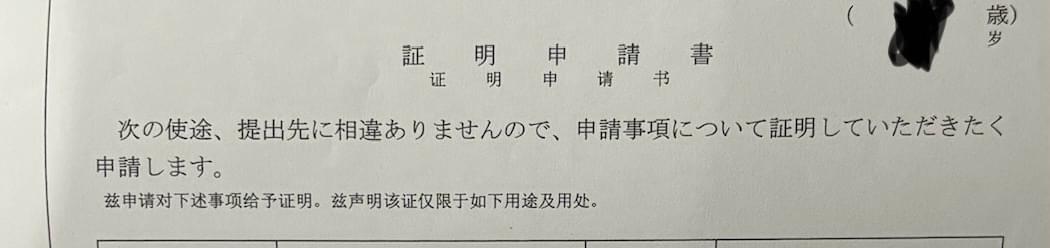 ( 歳)
岁
証明申請書
证明申请书
次の使途、提出先に相違ありませんので、申請事項について証明していただきたく
申請します。
兹申请对下述事项给予证明。兹声明该证仅限于如下用途及用处。